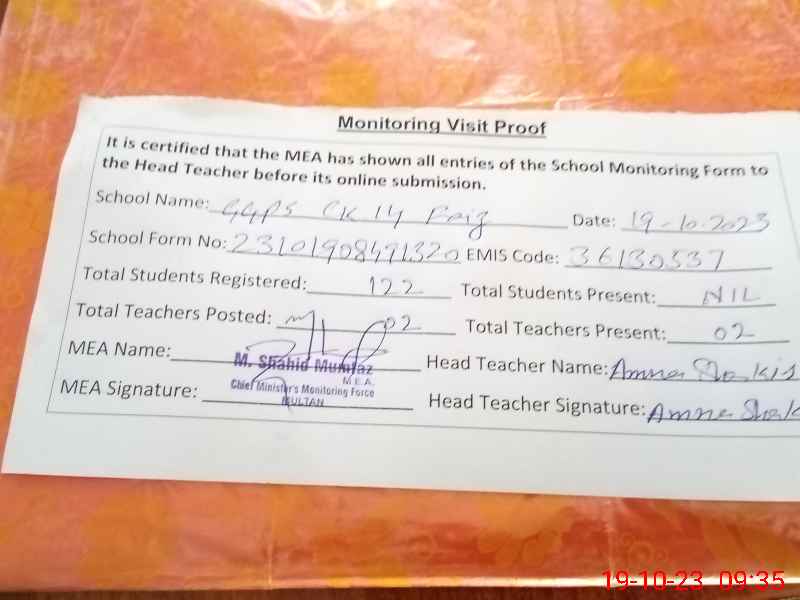 Monitoring Visit Proof
It is certified that the MEA has shown all entries of the School Monitoring Form to
the Head Teacher before its online submission.
School Name: GGPS CK 14 Faiz Date: 19-10-2023
School Form No: EMIS Code: 36130537
Total Students Registered: 122 Total Students Present: NIL
Total Teachers Posted: 02 Total Teachers Present: 02
MEA Name: Head Teacher Name: Amna
M. Shahid Mumtaz
M.E.A.
Chief Minister's Monitoring Force
MULTAN
MEA Signature: Head Teacher Signature: Amna
19-10-23 09:35